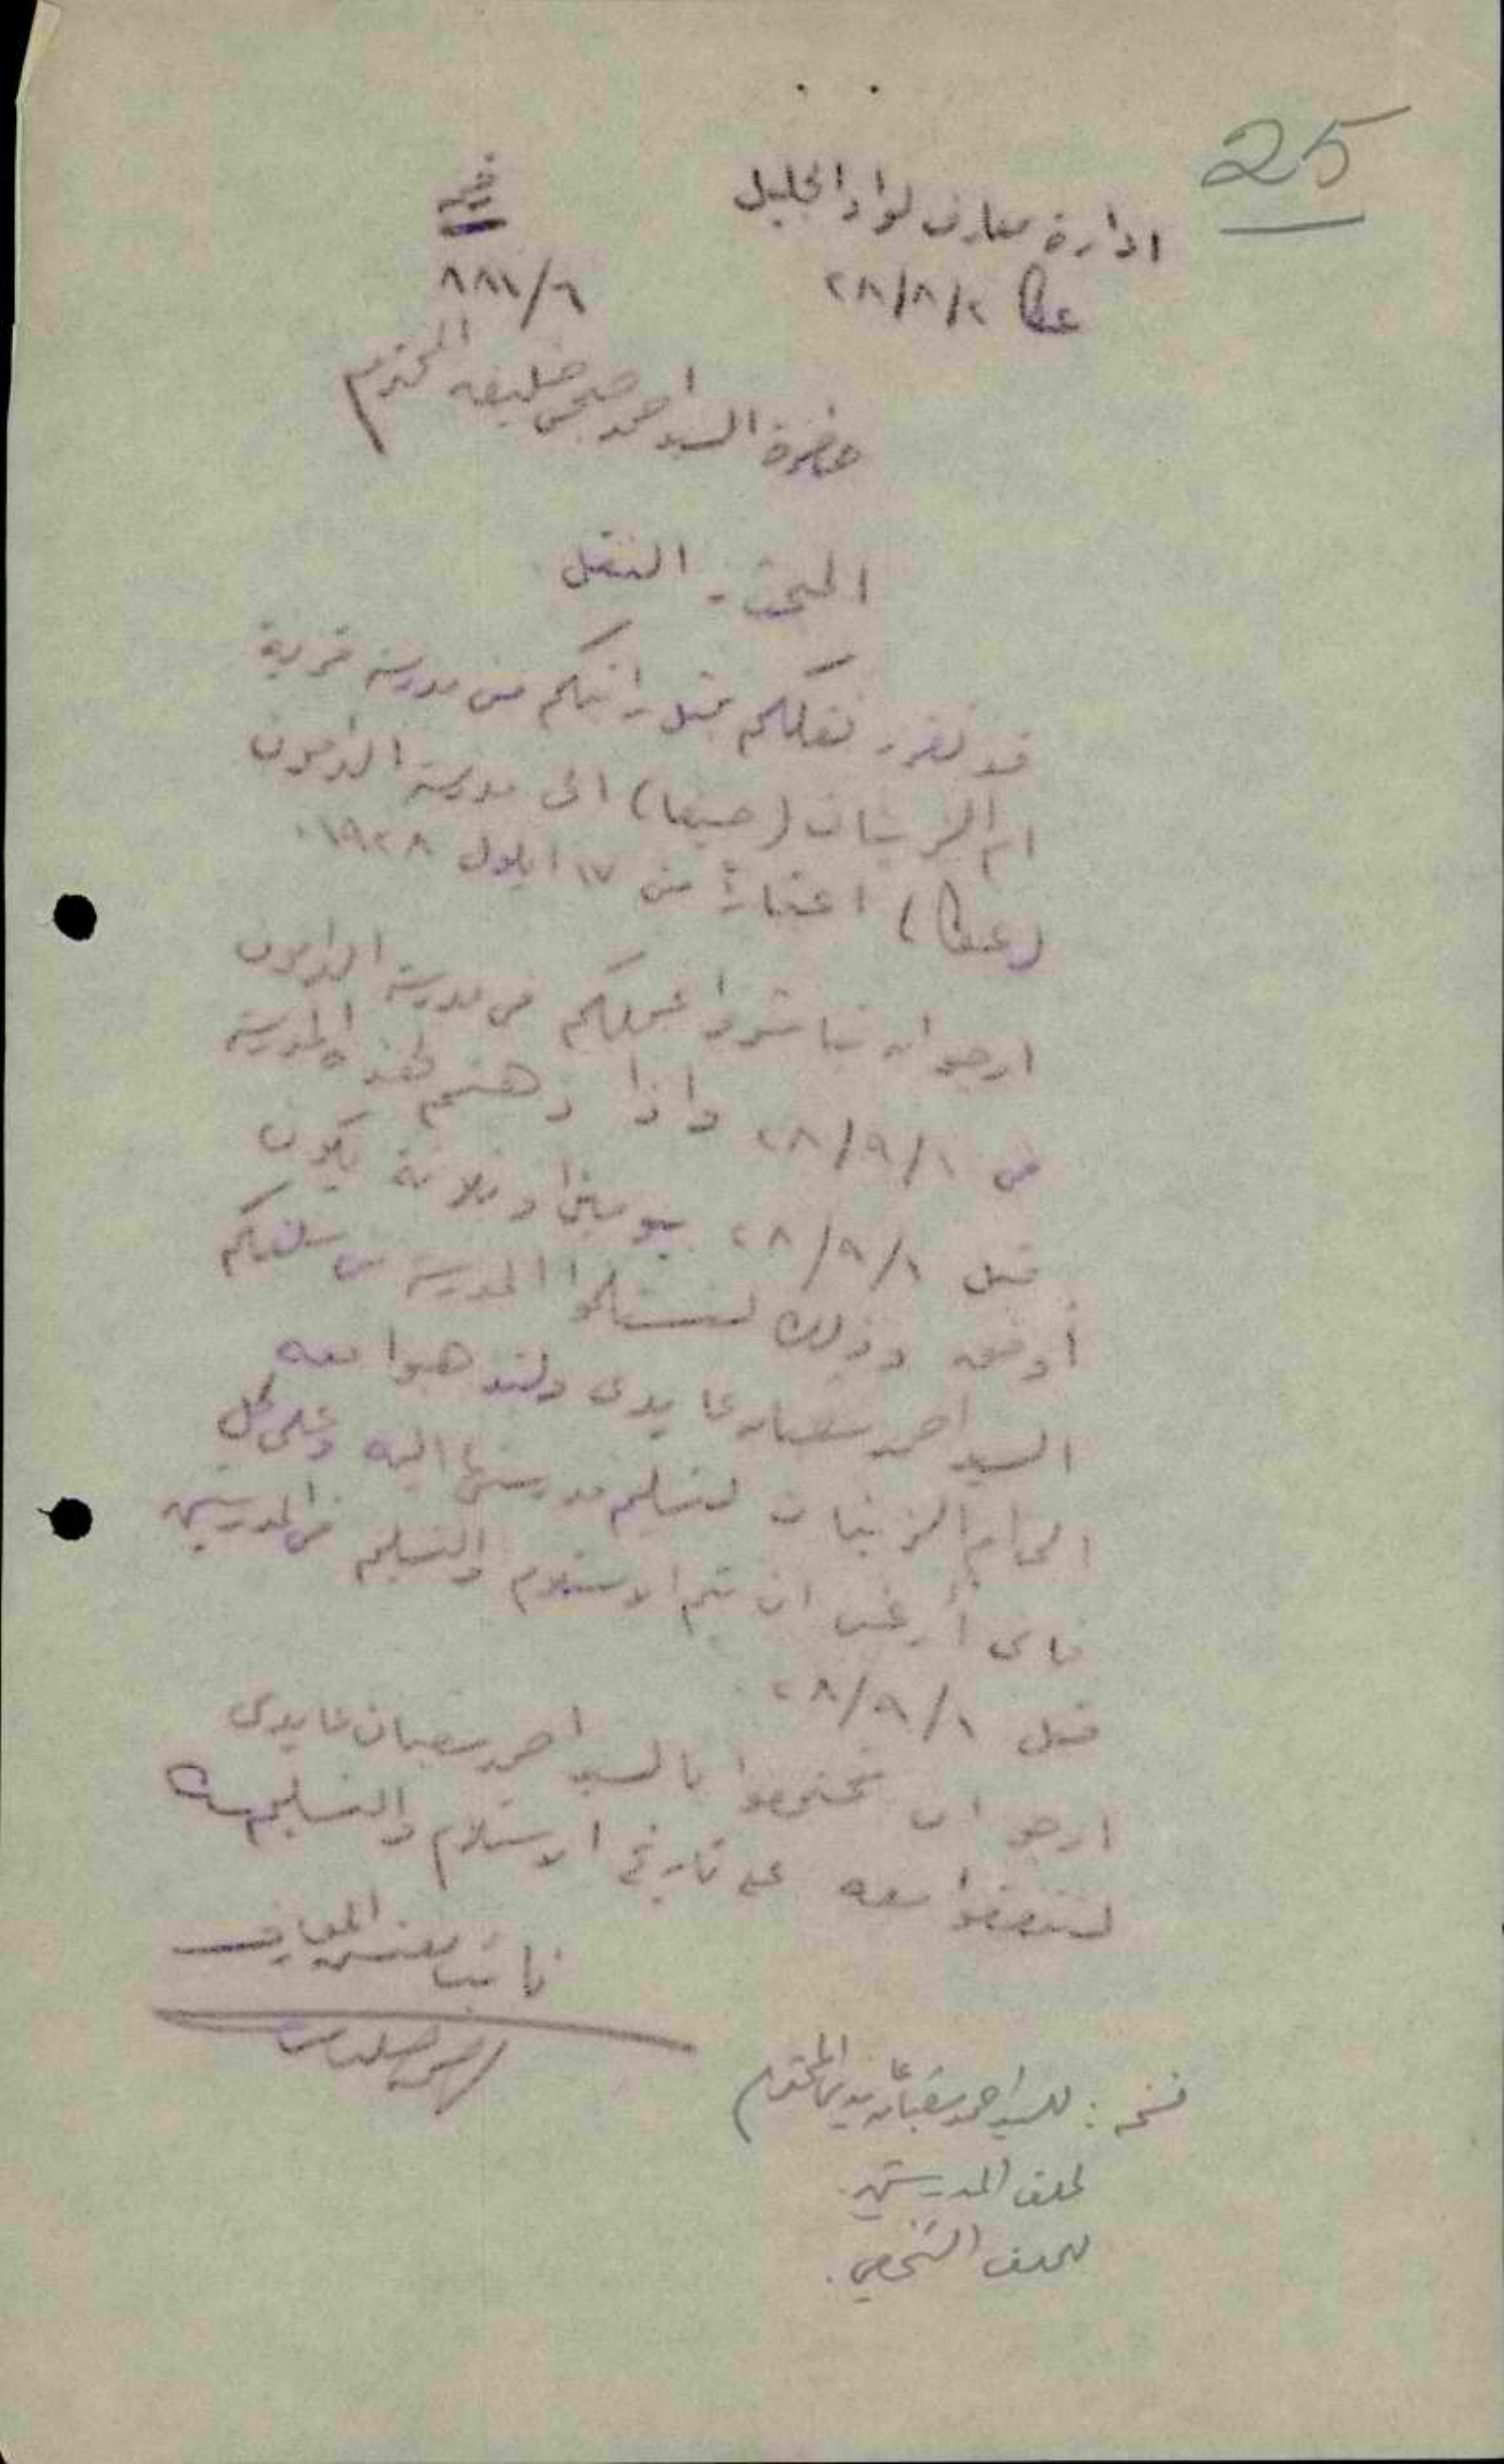 25
ادارة معارف لواء الجليل
عكا ٢٨/٨/٢
٨٨١/٦
حضرة السيد احمد صبحي خليفه المحترم
البحث - النقل
قد تقرر نقلكم بمثل راتبكم من مدرسة قرية
ام الزينات (حيفا) الى مدرسة الدامون
(عكا) اعتباراً من ١٧ ايلول ١٩٢٨.
ارجو ان تباشروا عملكم في مدرسة الدامون
في ٢٨/٩/١ واذا ذهبتم لهذه المدرسة
قبل ٢٨/٩/١ بيومين او ثلاثة يكون
أوفق وذلك لتستلموا المدرسة من سلفكم
السيد احمد شعبان عايدي ولتذهبوا معه
الى ام الزينات لتسليم مدرستها اليه وعلى كل
فاني أرغب ان يتم الاستلام والتسليم في المدرستين
قبل ٢٨/٩/١.
ارجو ان تجتمعوا بالسيد احمد شعبان عايدي
لتتفقوا معه على تاريخ الاستلام والتسليم
نائب مفتش المعارف
نسخه : للسيد احمد شعبان عايدي المحترم
لملف المدرستين.
للملف الشخصي.